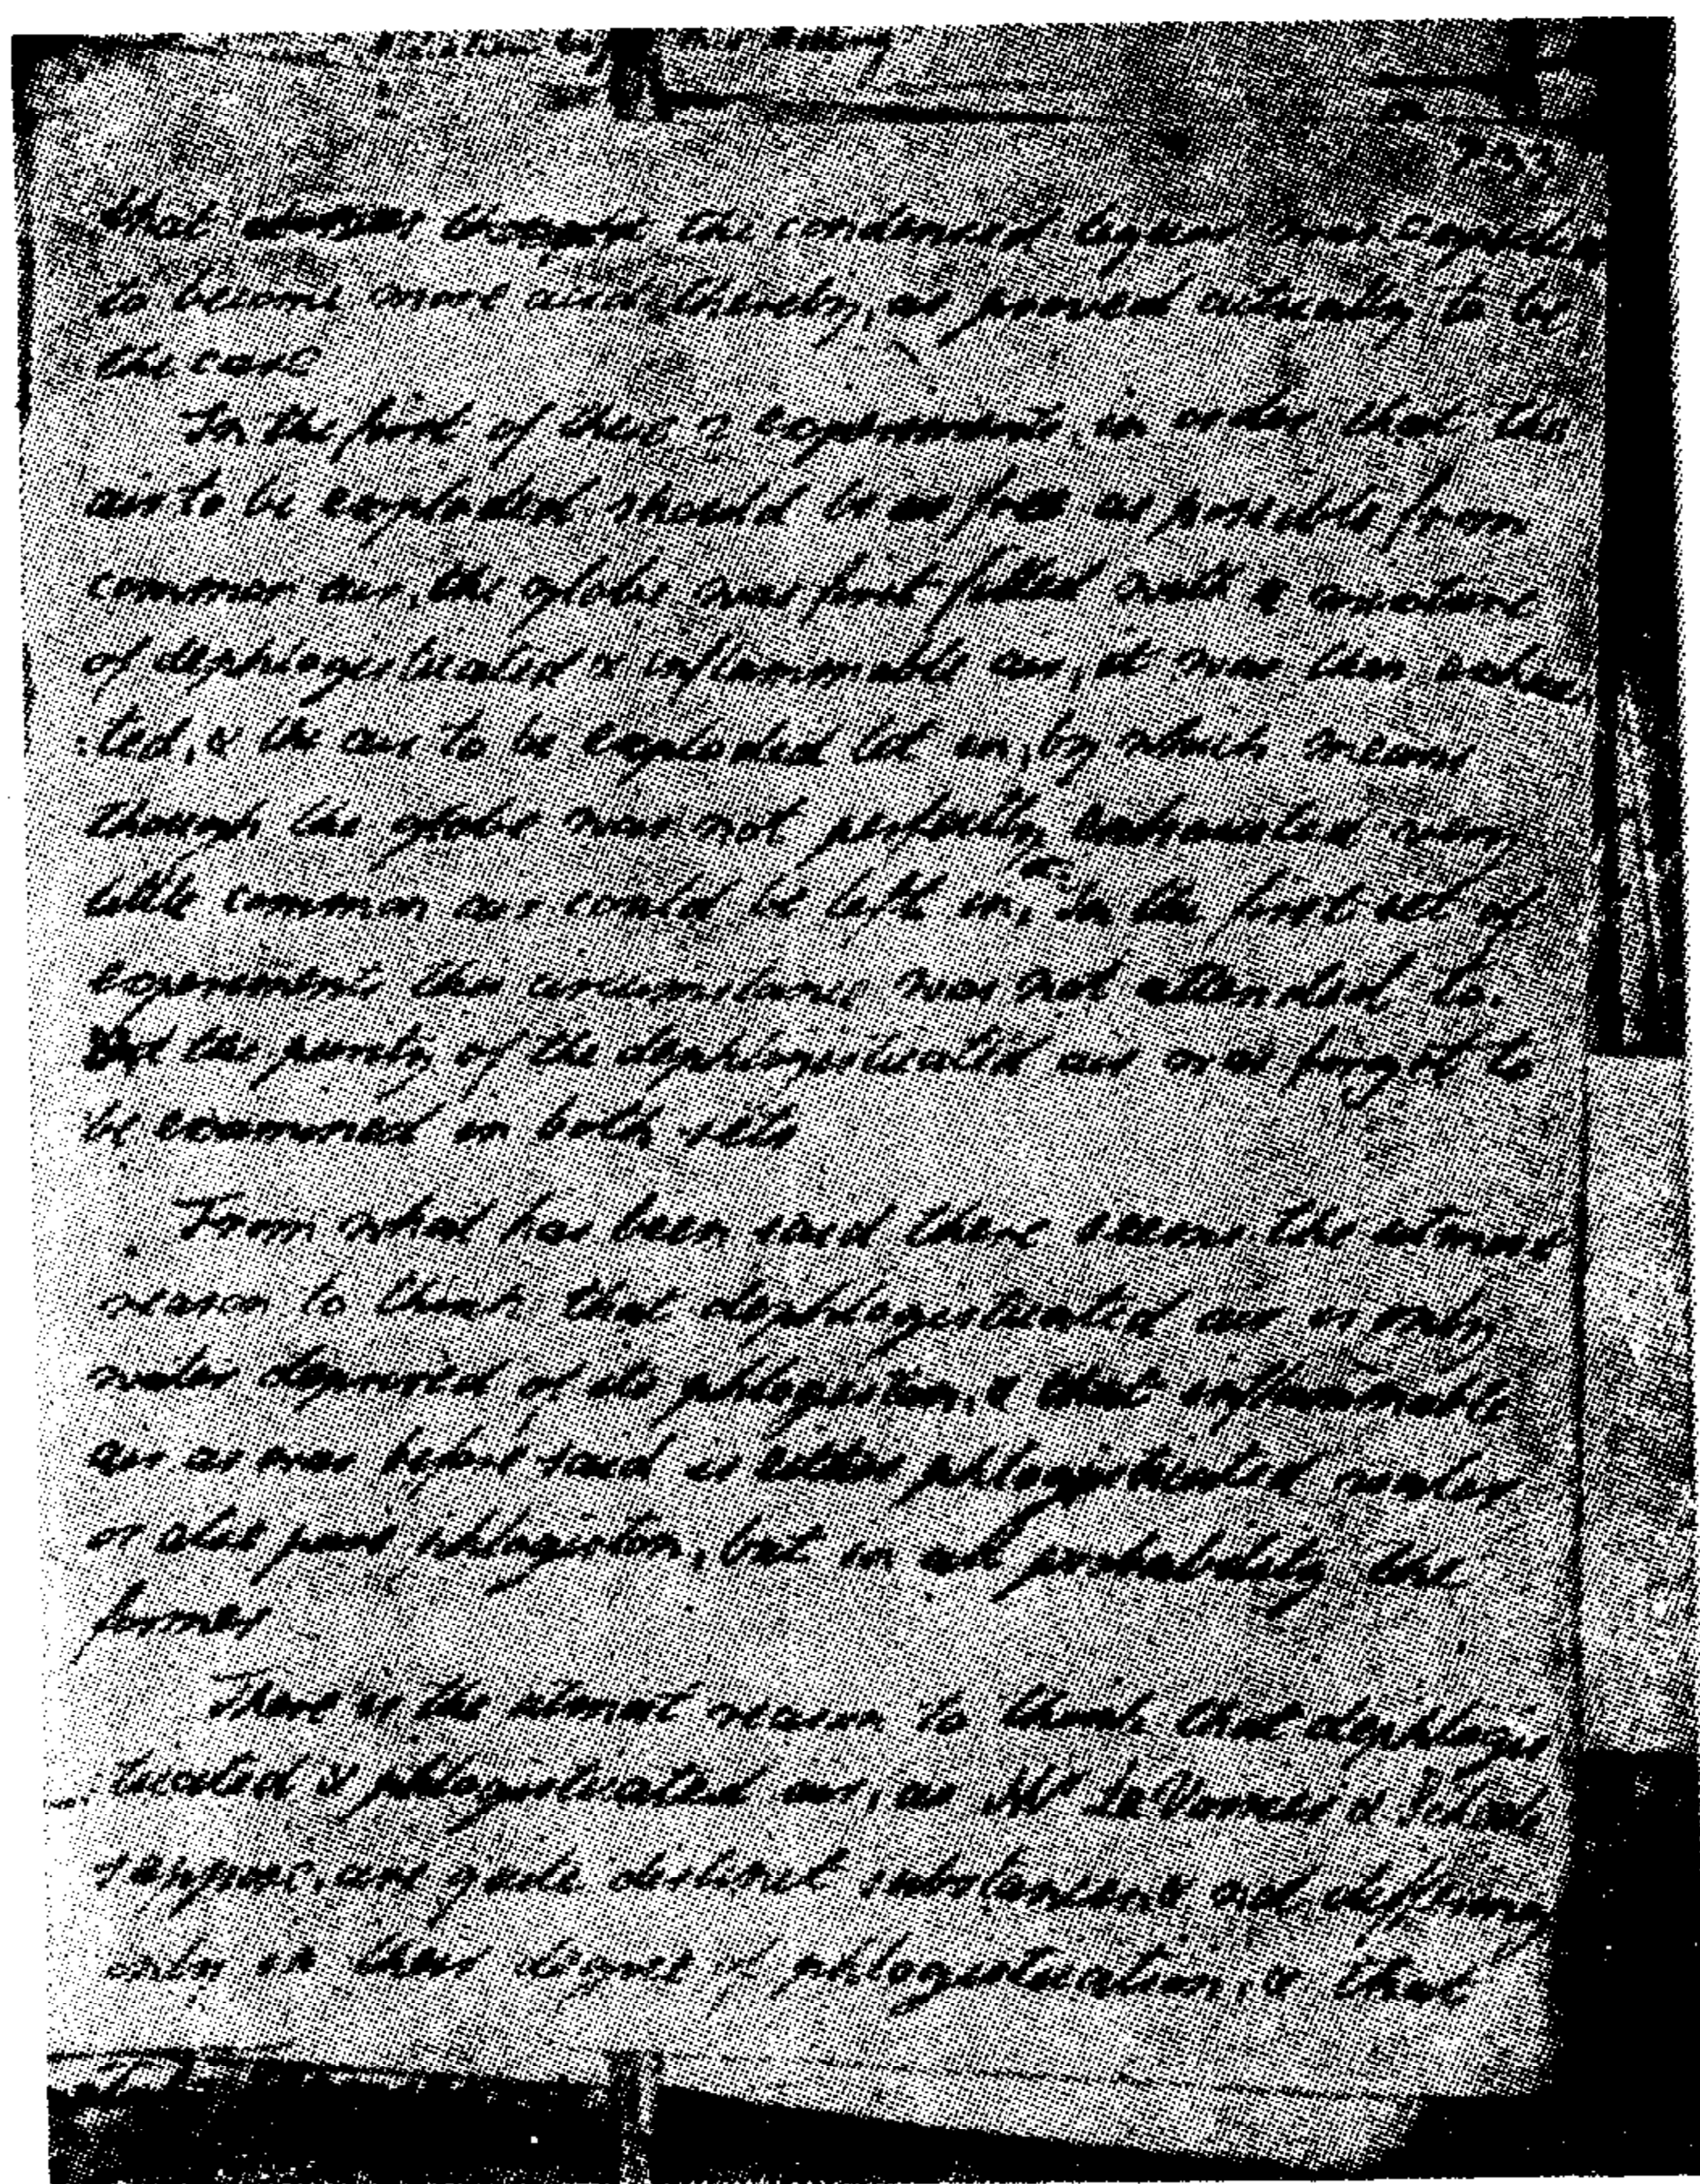 that though the condensed liquor was
to become more acid thereby, as proved actually to be
the case
In the first of these 2 experiments, in order that the
air to be exploded should be as free as possible from
common air, the globe was first filled with a mixture
of dephlogisticated & inflammable air, it was then exhaus
:ted, & the air to be exploded let in, by which means
though the globe was not perfectly exhausted very
little common air could be left in, In the first set of
experiments this circumstance was not attended to.
the purity of the dephlogisticated air was forgot to
be examined in both sets
From what has been said there seems the utmost
reason to think that dephlogisticated air is only
water deprived of its phlogiston, & that inflammable
air as was before said is either phlogisticated water
or else pure phlogiston, but in all probability the
former
There is the utmost reason to think that dephlogis
:ticated & phlogisticated air, as Mr La Voisier & Scheele
suppose, are quite distinct substances & not differing
only in their degree of phlogistication, & that